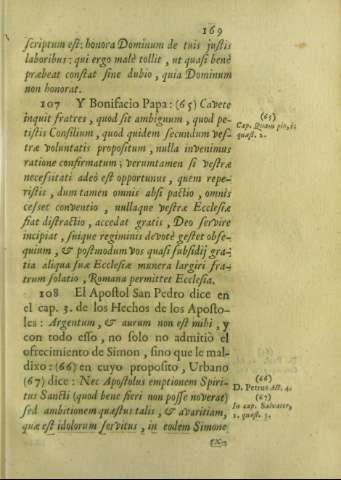 169
scriptum est: honora Dominum de tuis justis
laboribus: qui ergo malè tollit, ut quasi benè
præbeat constat sine dubio, quia Dominum
non honorat.
107 Y Bonifacio Papa: (65) Cavete
inquit fratres, quod sit ambiguum, quod pe-
tistis Consilium, quod quidem secundum ves-
træ voluntatis propositum, nulla invenimus
ratione confirmatum; verumtamen si vestræ
necessitati adeò est opportunus, quem repe-
ristis, dum tamen omnis absi pactio, omnis
cesset conventio, nullaque vestræ Ecclesiæ
fiat distractio, accedat gratis, Deo servire
incipiat, suique regiminis devotè gestet obse-
quium, & postmodum vos quasi subsidij gra-
tia aliqua suæ Ecclesiæ munera largiri fra-
trum solatio, Romana permittet Ecclesia.
108 El Apostol San Pedro dice en
el cap. 3. de los Hechos de los Aposto-
les: Argentum, & aurum non est mihi, y
con todo esso, no solo no admitiò el
ofrecimiento de Simon, sino que le mal-
dixo: (66) en cuyo proposito, Urbano
(67) dice: Nec Apostolus emptionem Spiri-
tus Sancti (quod bene fieri non posse noverat)
sed ambitionem quæstus talis, & avaritiam,
quæ est idolorum servitus, in eodem Simone
(65)
Cap. Quam pio, 1.
quæst. 2.
(66)
D. Petrus Act. 4.
(67)
In cap. Salvator,
1. quæst. 3.